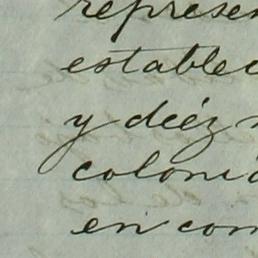 represen
establec
y diéz n
coloni
en com